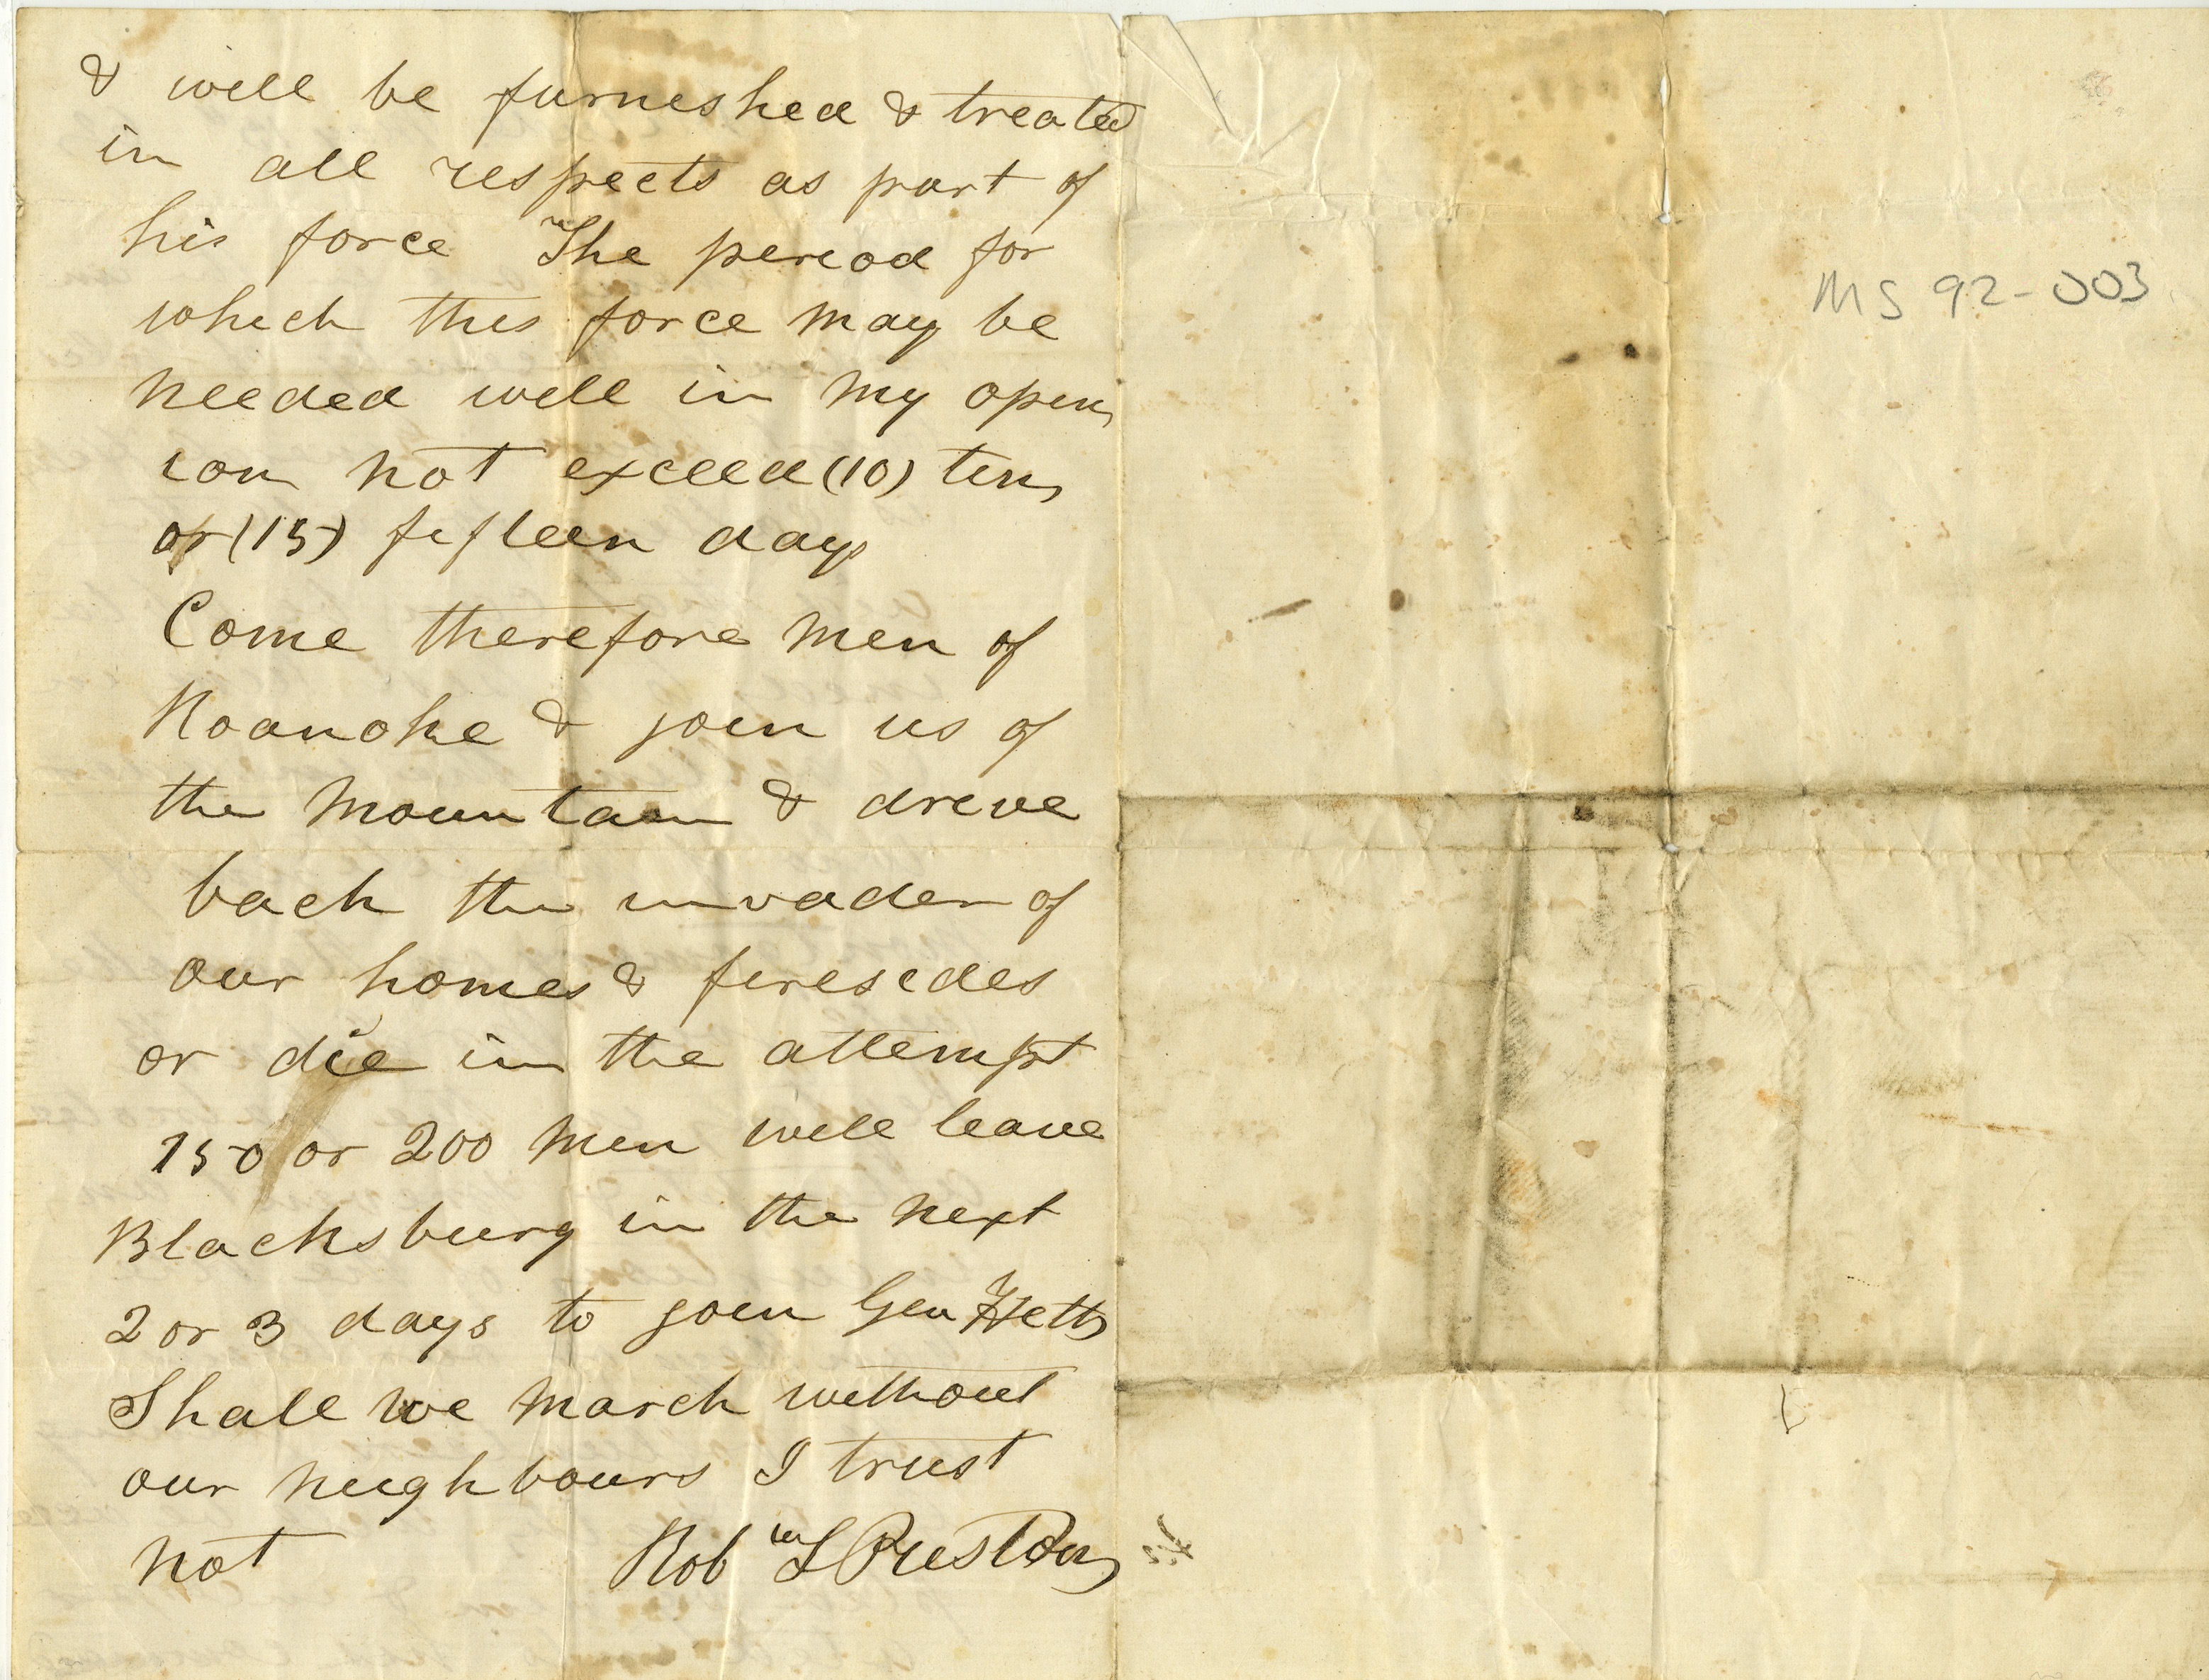 & will be furnished & treated
in all respects as part of
his force The period for
which this force may be
needed will in my opin
ion not exceed (10) ten
or (15) fifteen days
Come therefore men of
Roanoke & join us of
the mountain & drive
back the invader of
our homes & firesides
or die in the attempt
150 or 200 men will leave
Blacksburg in the next
2 or 3 days to join Gen Heth
Shall we march without
our neighbours I trust
not Rob L Preston
MS 92-003